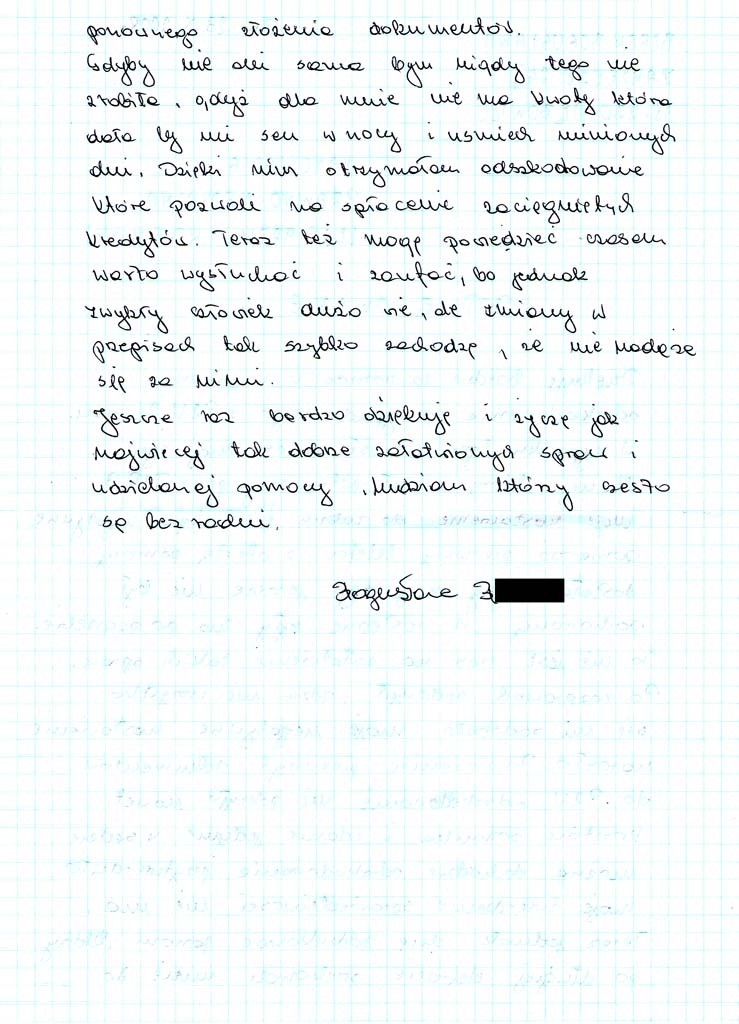 ponownego złożenia dokumentów.
Gdyby nie oni sama bym nigdy tego nie
zrobiła, gdyż dla mnie nie ma kwoty która
dała by mi sen w nocy i uśmiech minionych
dni. Dzięki nim otrzymałam odszkodowanie
które pozwoli na spłacenie zaciągniętych
kredytów. Teraz też mogę powiedzieć czasem
warto wysłuchać i zaufać, bo jednak
zwykły człowiek dużo wie, ale zmiany w
przepisach tak szybko zachodzą, że nie nadąża
się za nimi.
Jeszcze raz bardzo dziękuję i życzę jak
najwięcej tak dobrze załatwionych spraw i
udzielanej pomocy, ludziom którzy często
są bezradni.